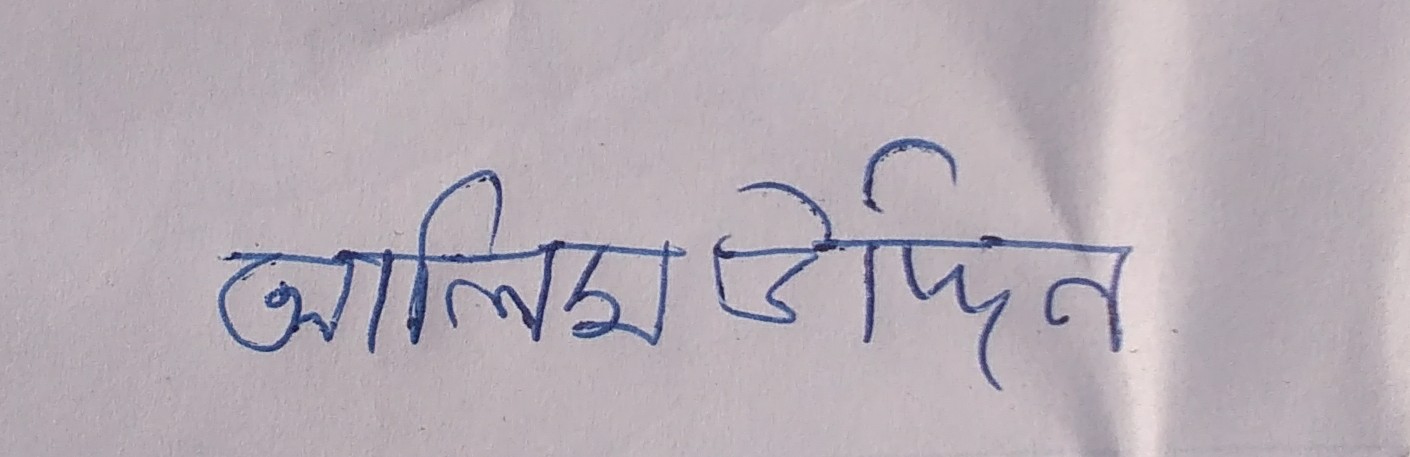 আলিম উদ্দিন